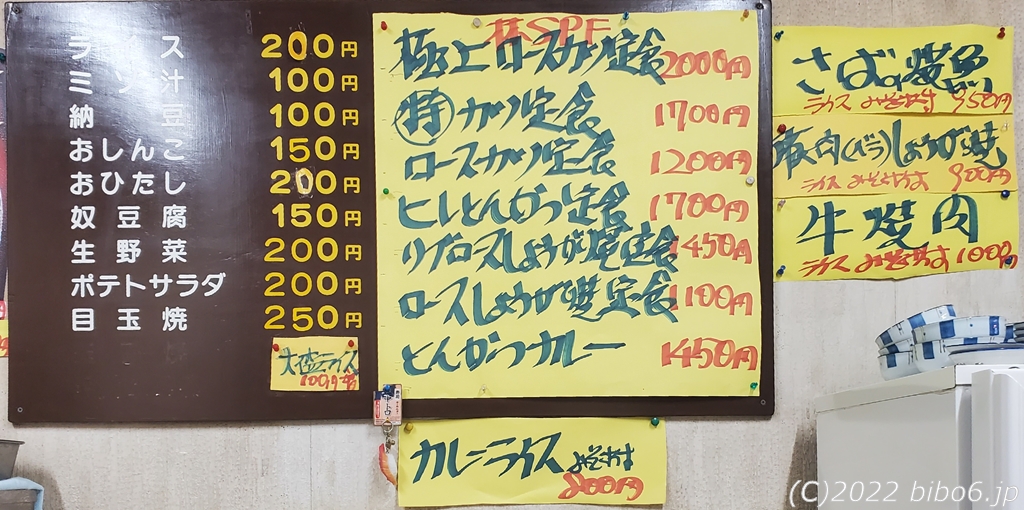 ライス 200円
ミソ汁 100円
納豆 100円
おしんこ 150円
おひたし 200円
奴豆腐 150円
生野菜 200円
ポテトサラダ 200円
目玉焼 250円
大盛ライス
100円増
林SPF
極上ロースカツ定食 2000円
特カツ定食 1700円
ロースカツ定食 1200円
ヒレとんかつ定食 1700円
リブロースしょうが焼定食 1450円
ロースしょうが焼定食 1100円
とんかつカレー 1450円
カレーライス みそ汁付
800円
さばの塩焼
ライス みそ汁付 950円
豚肉(バラ)しょうが焼
ライス みそ汁付 900円
牛焼肉
ライス みそ汁付 1000円
(C)2022 bibo6.jp